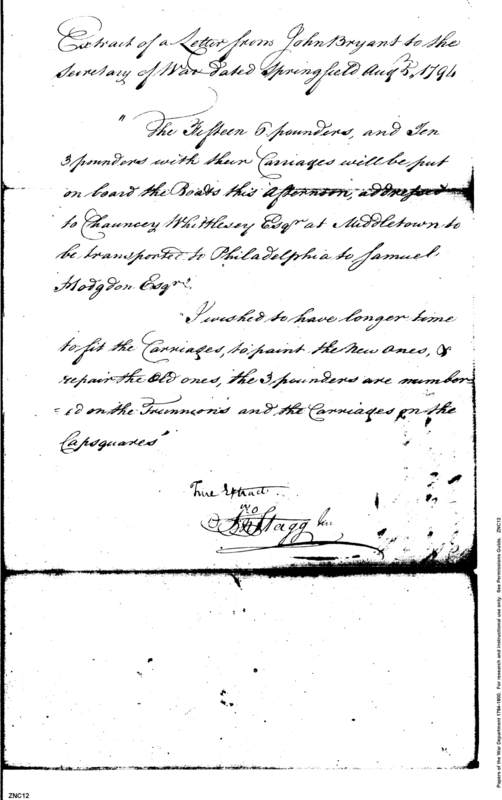 Extract of a Letter from John Bryant to the
Secretary of War dated Springfield Augt 5, 1794
"The Fifteen 6 pounders, and Ten
3 pounders with their Carriages will be put
on board the Boats this afternoon, addressed
to Chauncey Whittlesey Esqr at Middletown to
be transported to Philadelphia to Samuel
Hodgdon Esqr.
"I wished to have longer time
to fit the Carriages, to paint the New ones, &
repair the Old ones, the 3 pounders are number
=ed on the Trunnions and the Carriages on the
Capsquares"
True Extract
Jno Stagg Jun
ZNC12
Papers of the War Department 1784-1800. For research and instructional use only. See Permissions Guide. ZNC12